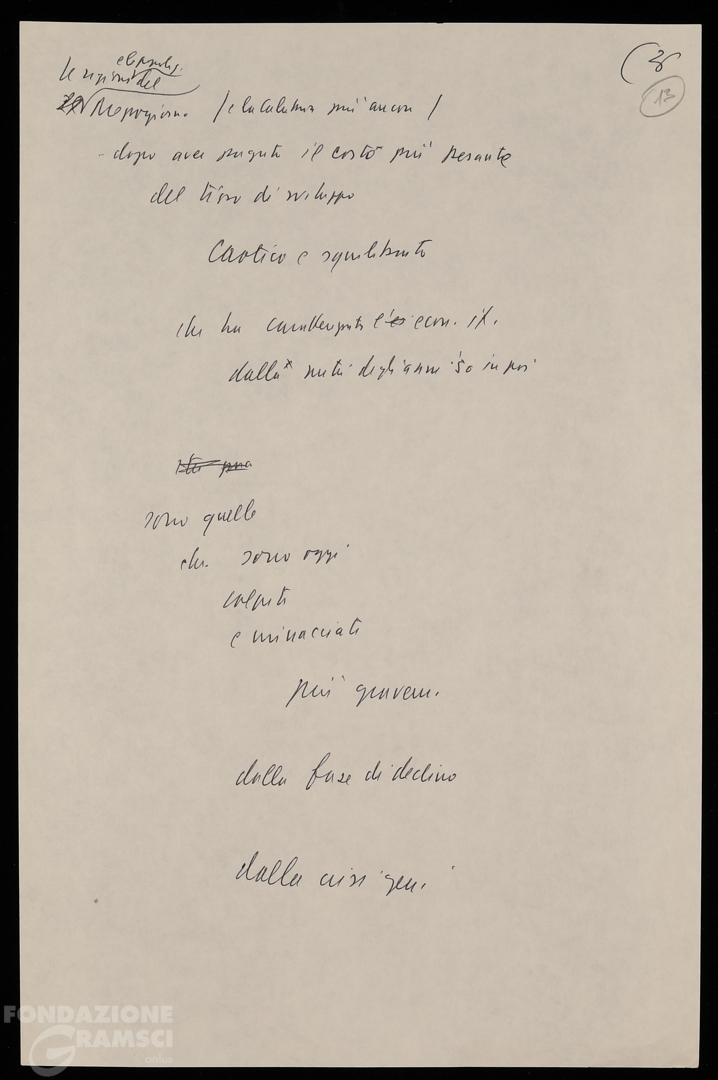 (3
13
e le popolaz.
Le regioni del
Mezzogiorno / e la Calabria più ancora /
- dopo aver pagato il costo più pesante
del tipo di sviluppo
Caotico e squilibrato
che ha caratterizzato l' econ. it.
dalla metà degli anni '50 in poi
sono quelle
che sono oggi
colpite
e minacciate
più gravem.
dalla fase di declino
dalla crisi gen.
FONDAZIONE
GRAMSCI
onlus